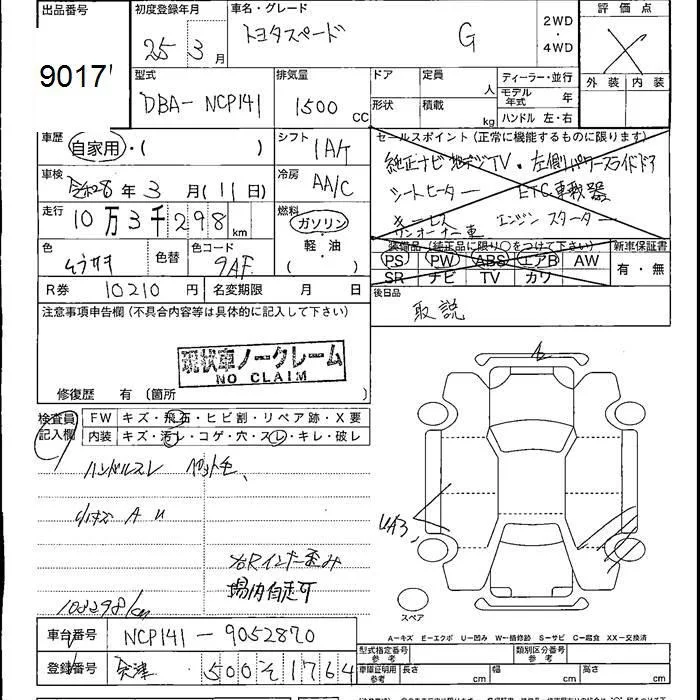 出品番号 初度登録年月 車名・グレード 評価点
9017
25年 3月 トヨタスペード G 2WD・4WD X
外装 内装
型式 排気量 ドア 定員 人 ディーラー・並行
DBA- NCP141 1500 CC 形状 積載 kg モデル年式 年
ハンドル 左・右
車歴 自家用・( ) シフト IA/T セールスポイント(正常に機能するものに限ります)
純正ナビ 地デジTV・左側パワースライドドア
車検 令和8年 3月(11日) 冷房 AA/C シートヒーター ETC車載器
走行 10万3千298km 燃料 ガソリン・軽油( ) キーレス エンジンスターター
ワンオーナー車
色 色替 色コード 9AF 装備品(純正品に限り○をつけて下さい) 新車保証書
ムラサキ PS PW ABS エアB AW 有・無
SR ナビ TV カワ
R券 10210円 名変期限 月 日 後日品
取説
注意事項申告欄(不具合内容等は具体的に記入して下さい)
現状車ノークレーム
NO CLAIM
修復歴 有(箇所 )
検査員記入欄 FW キズ・飛石・ヒビ割・リペア跡・X要
内装 キズ・汚レ・コゲ・穴・スレ・キレ・破レ
ハンドルスレ ペット毛、
A U
UA3
右Rインナー歪み
場内自走可
103298/km
スペア
A=キズ E=エクボ U=凹み W=補修跡 S=サビ C=腐食 XX=交換済
車台番号 NCP141-9052870
型式指定番号 参考 類別区分番号 参考
登録番号 会津 500 そ 1764
車庫証明用参考 長さ cm 幅 cm 高さ cm